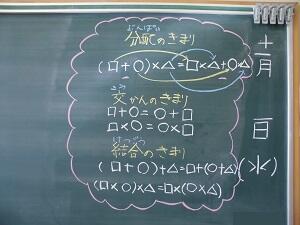 ぶんぱい
分配のきまり
(□+○)×△=□×△+○×△
こう
交かんのきまり
□+○=○+□
□×○=○×□
けつごう
結合のきまり
(□+○)+△=□+(○+△)
(□×○)×△=□×(○×△)
十一月
日
(火)